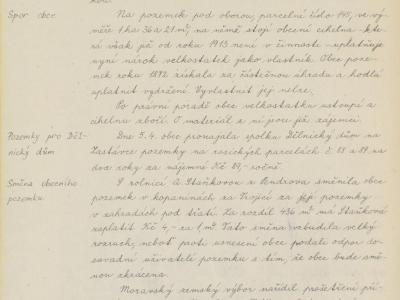 Spor obce
Na pozemek pod oborou, parcelné číslo 145, ve vý-
měře 1 ha 36 a 21 m², na němž stojí obecní cihelna - kte-
rá však již od roku 1913 není v činnosti - uplatňuje
nyní nárok velkostatek jako vlastník. Obec poze-
mek roku 1892 získala za částečnou úhradu a hodlá
uplatnit vydržení. Vyvlastnit jej nelze.
Po právní poradě obec velkostatku ustoupí a
cihelnu zboří. O materiál z ní jsou již zájemci.
Pozemky pro Děl-
nický dům
Dne 5.4. obec pronajala spolku Dělnický dům na
Zastávce pozemky na rosických parcelách č. 88 a 89 na
dva roky za nájemné Kč 80,- ročně.
Směna obecního
pozemku
S rolnicí A. Staňkovou z Hendrova směnila obec
pozemek v kopaninách za Kojící za její pozemky
v zahradách pod tratí. Za rozdíl 436 m² má Staňková
zaplatit Kč 4,- za 1 m². Tato směna vzbudila velký
rozruch, neboť proti usnesení obce podali odpor do-
savadní uživatelé pozemku s tím, že obec bude smě-
nou zkrácena.
Moravský zemský výbor nařídil prošetření pří-